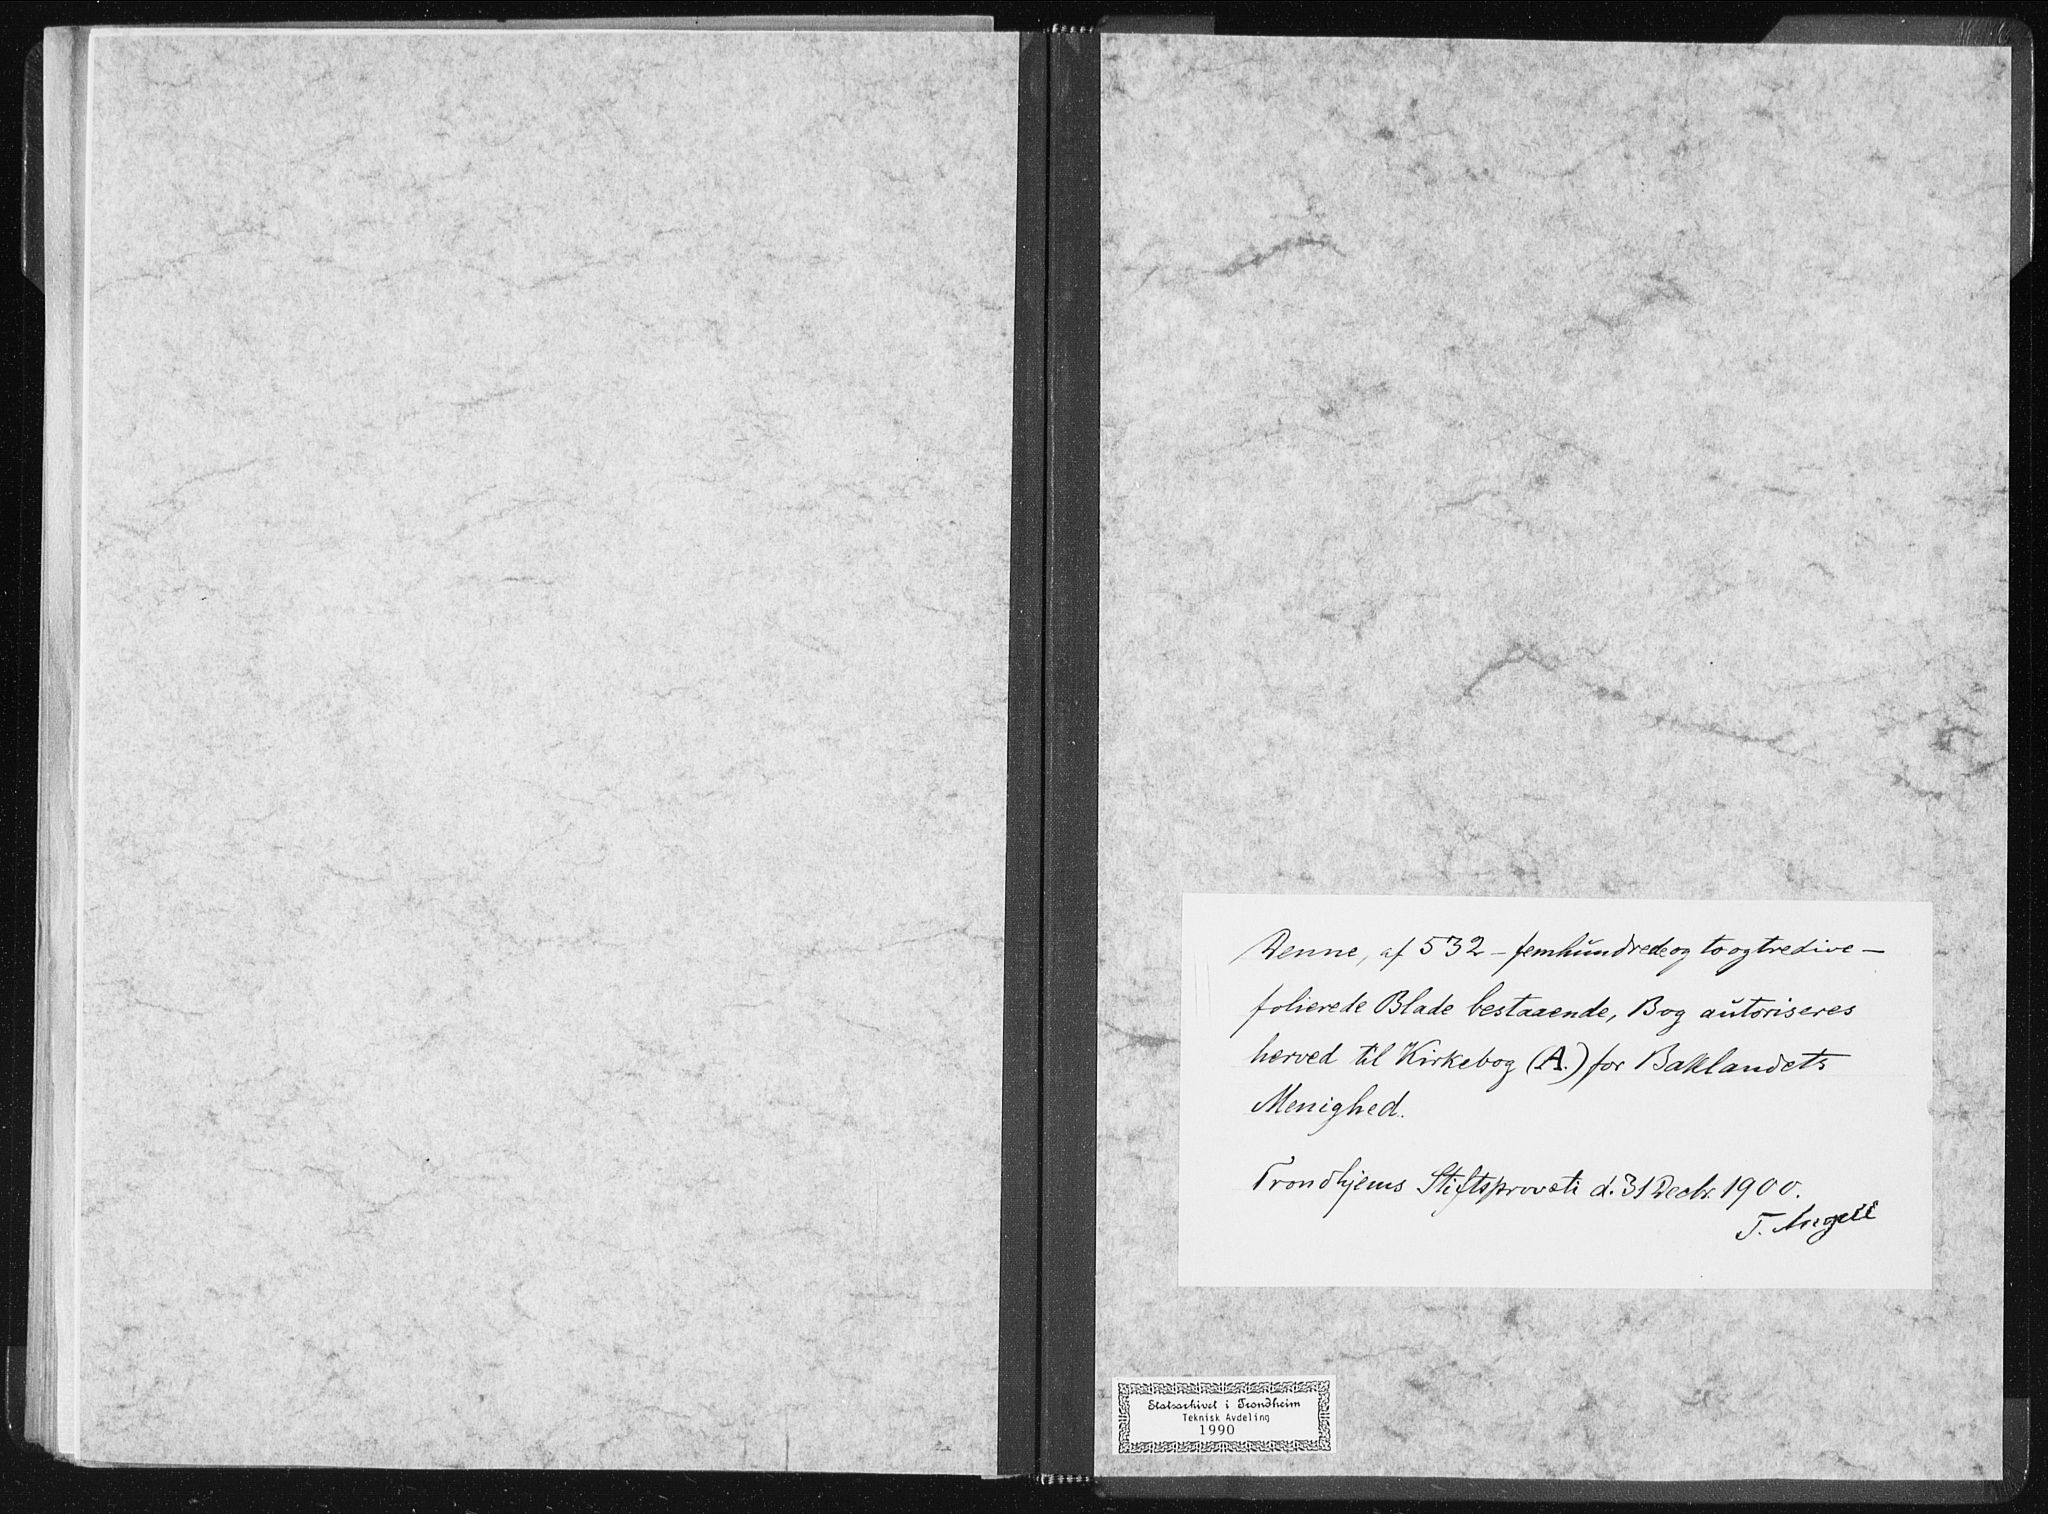 Denne, af 532 – femhundrede og to og tredive –
folierede Blade bestaaende, Bog autoriseres
herved til Kirkebog (A.) for Baklandets
Menighed.
Trondhjems Stiftsprovsti d. 31 Decbr. 1900.
T. Angell
Statsarkivet i Trondheim
Teknisk Avdeling
1990